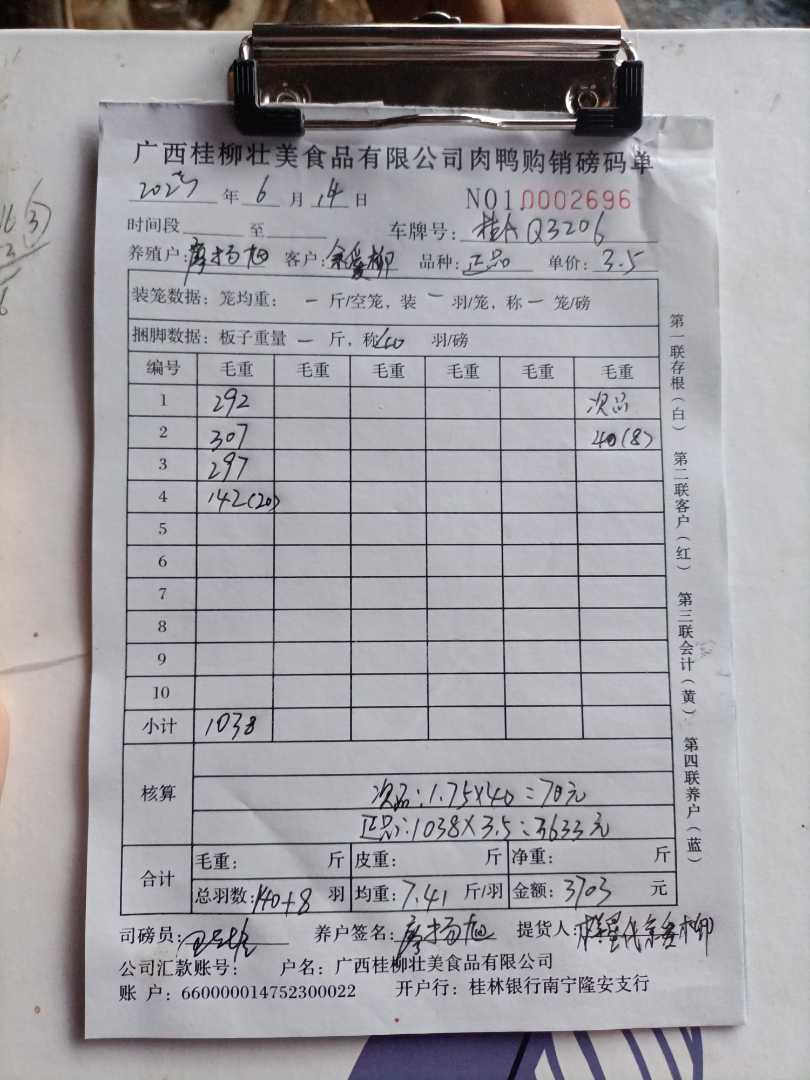 广西桂柳壮美食品有限公司肉鸭购销磅码单
年 6 月 14 日 NO1.0002696
时间段 至 车牌号: 桂A Q3206
养殖户: 廖扬旭 客户: 余爱柳 品种: 正品 单价: 3.5
装笼数据: 笼均重: 一 斤/空笼, 装 一 羽/笼, 称 一 笼/磅
捆脚数据: 板子重量 一 斤, 称 40 羽/磅
编号 毛重 毛重 毛重 毛重 毛重 毛重
1 292 次品
2 307 40(8)
3 297
4 142(20)
5
6
7
8
9
10
小计 1038
核算
次品: 1.75×40=70元
正品: 1038×3.5=3633元
合计
毛重: 斤 皮重: 斤 净重: 斤
总羽数: 140+8 羽 均重: 7.41 斤/羽 金额: 3703 元
司磅员: 养户签名: 廖扬旭 提货人: 代余爱柳
公司汇款账号: 户名: 广西桂柳壮美食品有限公司
账 户: 660000014752300022 开户行: 桂林银行南宁隆安支行
第一联存根(白) 第二联客户(红) 第三联会计(黄) 第四联养户(蓝)